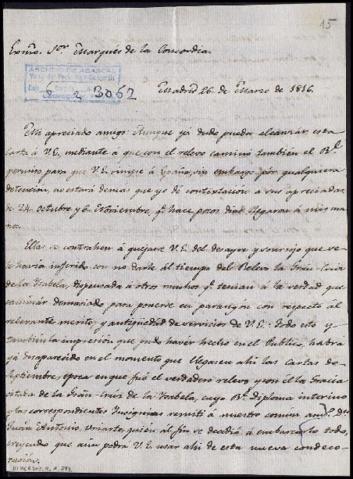 15
Exmo. Sor. Marqués de la Concordia.
ARCHIVO DE ABASCAL
C. 2 3062
Madrid 26 de Marzo de 1816.
Mi apreciado amigo: Aunque yá dudo pueda alcanzar esta
carta á V.E. mediante á que con el relevo caminó tambien el Rl.
permiso para que V.E. viniese á España, sin embargo por qualquiera
detencion, no estará demas que yo dé contextacion á sus apreciadas
de 24 octubre y 6 Noviembre, q. hace pocos dias llegaron á mis ma-
nos.
Ellas se contrahen á quejarse V.E. del desayre y sonrojo que se
le havia inferido con no darle al tiempo del Relevo la Gran Cruz
de la Ysabela, dispensada á otros muchos q. tenian á la verdad que
caminar demasiado para ponerse en parangon con respecto al
relevante merito, y antigüedad de servicios de V.E. Todo esto y
tambien la impresion que pudo haver hecho en el Publico, habrá
yá desaparecido en el momento que llegasen ahi las cartas de
Septiembre, epoca en que fué el verdadero relevo, y con él la Gracia
citada de la Gran Cruz de la Ysabela, cuyo Rl. diploma interino
y las correspondientes Insignias remití á nuestro comun amo. Dn.
Juan Antonio Uriarte, quien al fin se decidió á embarcarlo todo,
creyendo que aun podrá V.E. usar ahi de esta nueva conde-
coracion.